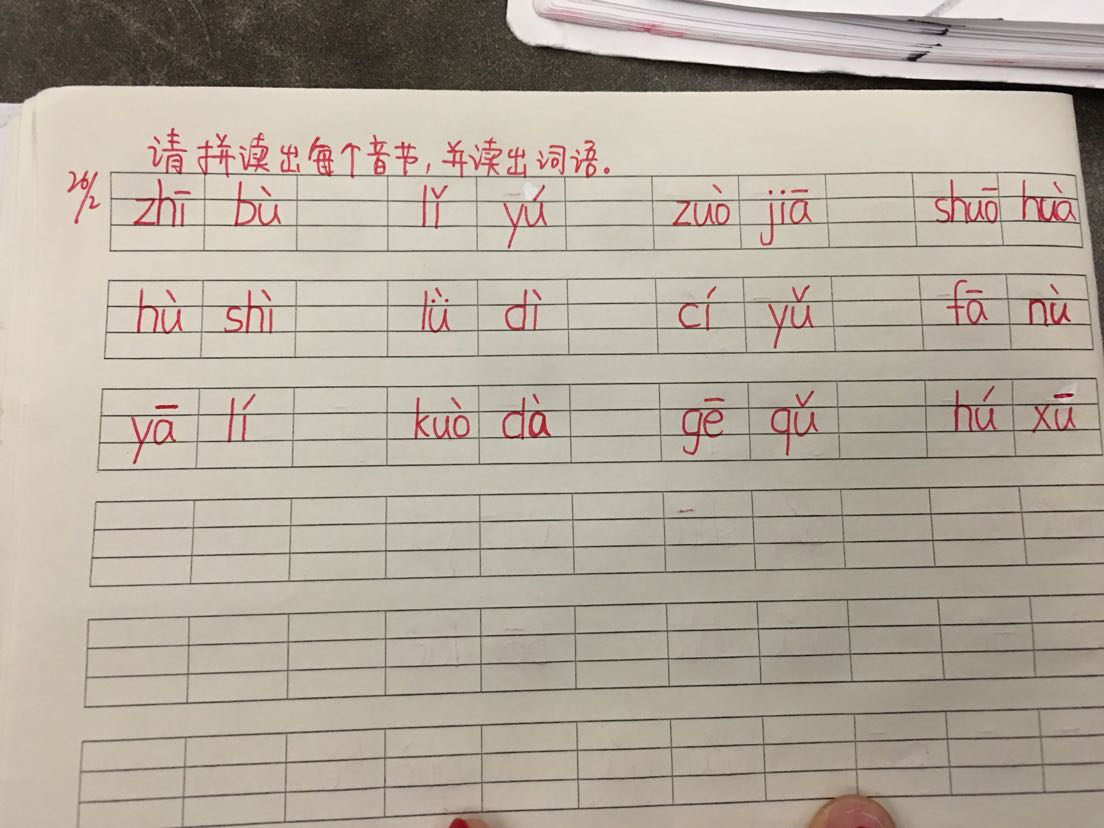 请拼读出每个音节,并读出词语。
26/2
zhī bù lǐ yú zuò jiā shuō huà
hù shì lǜ dì cí yǔ fā nù
yā lí kuò dà gē qǔ hú xū